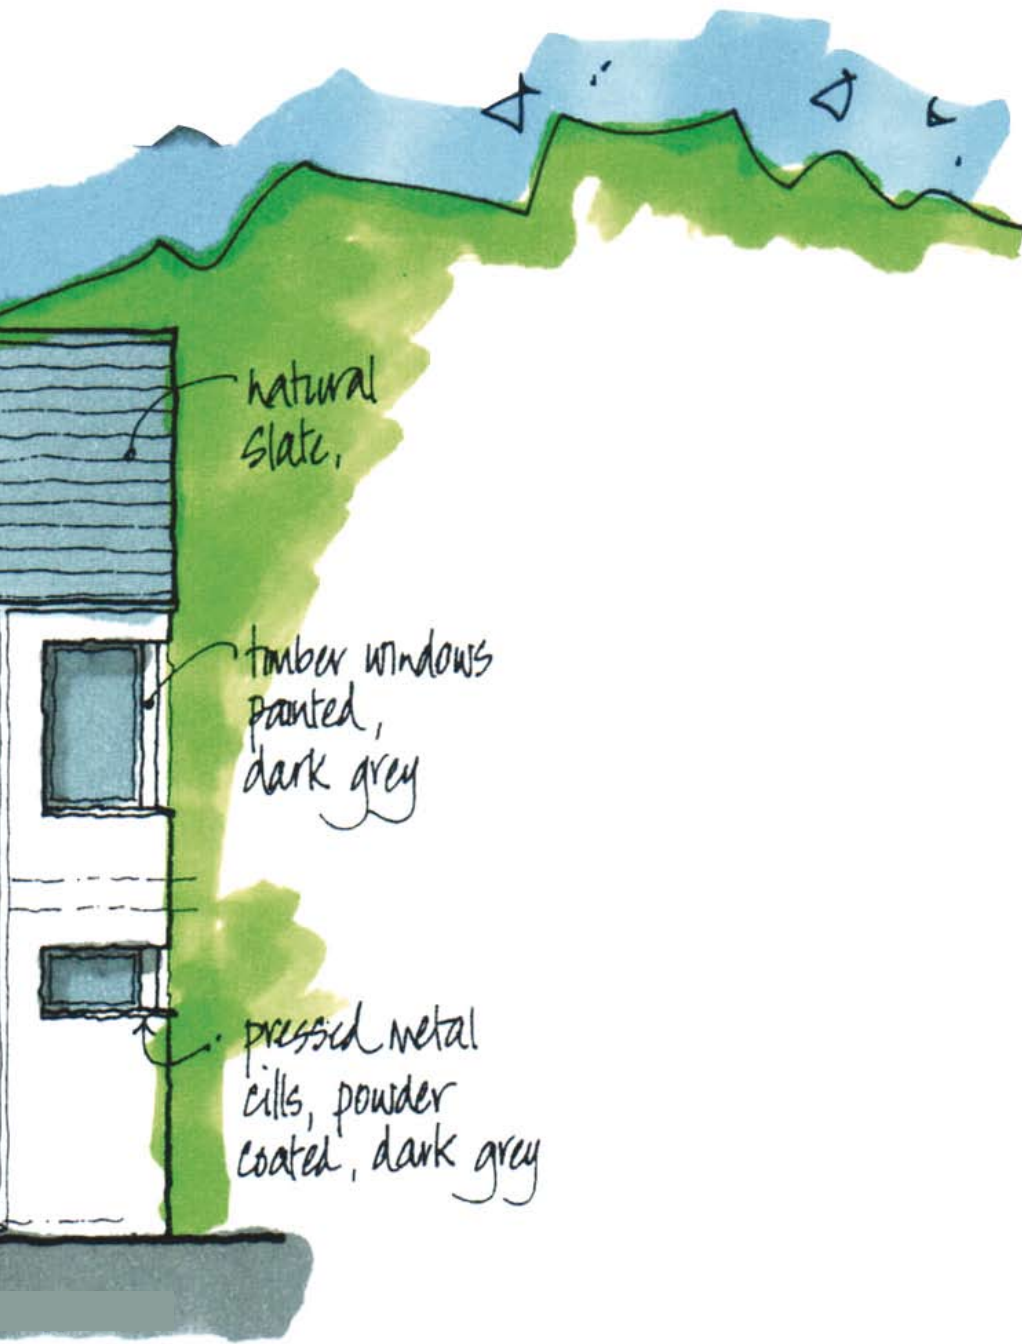 natural
slate,
timber windows
painted,
dark grey
pressed metal
cills, powder
coated, dark grey